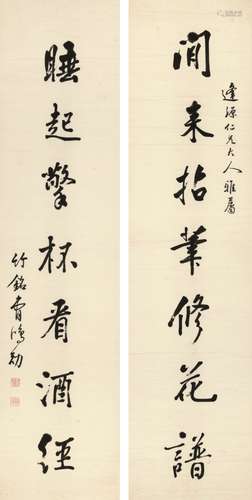 逢源仁兄大人雅屬
閒来拈筆修花譜
睡起擎杯看酒經
竹銘曹鴻勛